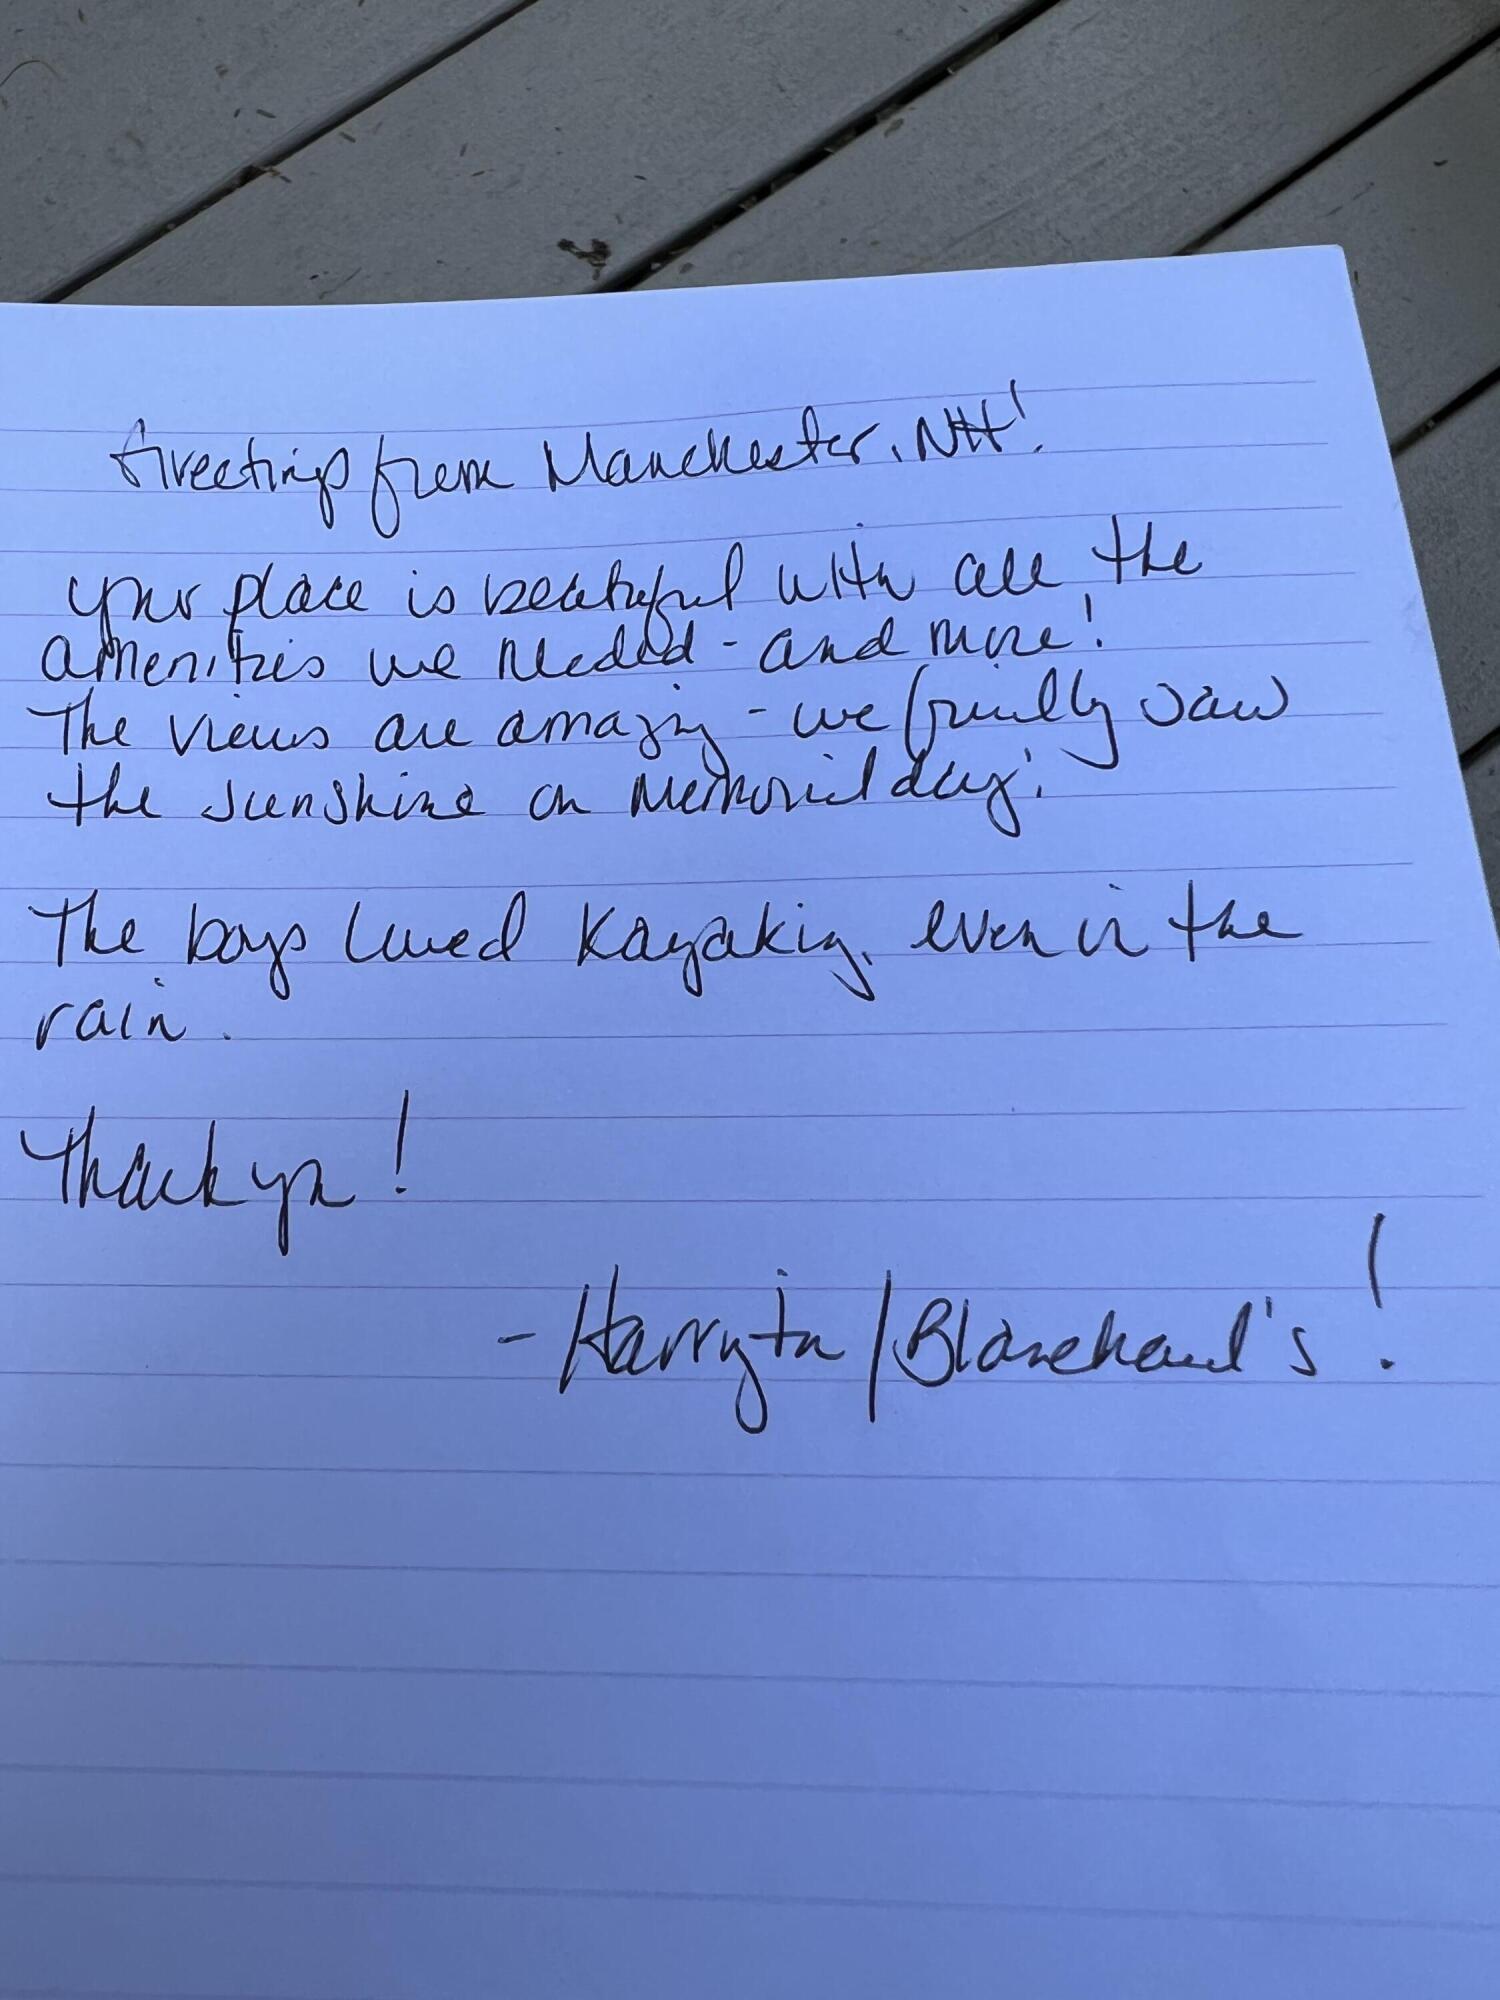 Greetings from Manchester, NH!
Your place is beautiful with all the
amenities we needed - and more!
The views are amazing - we finally saw
the sunshine on Memorial day!
The boys loved kayaking, even in the
rain.
Thank you!
- Harrington / Blanchard's!